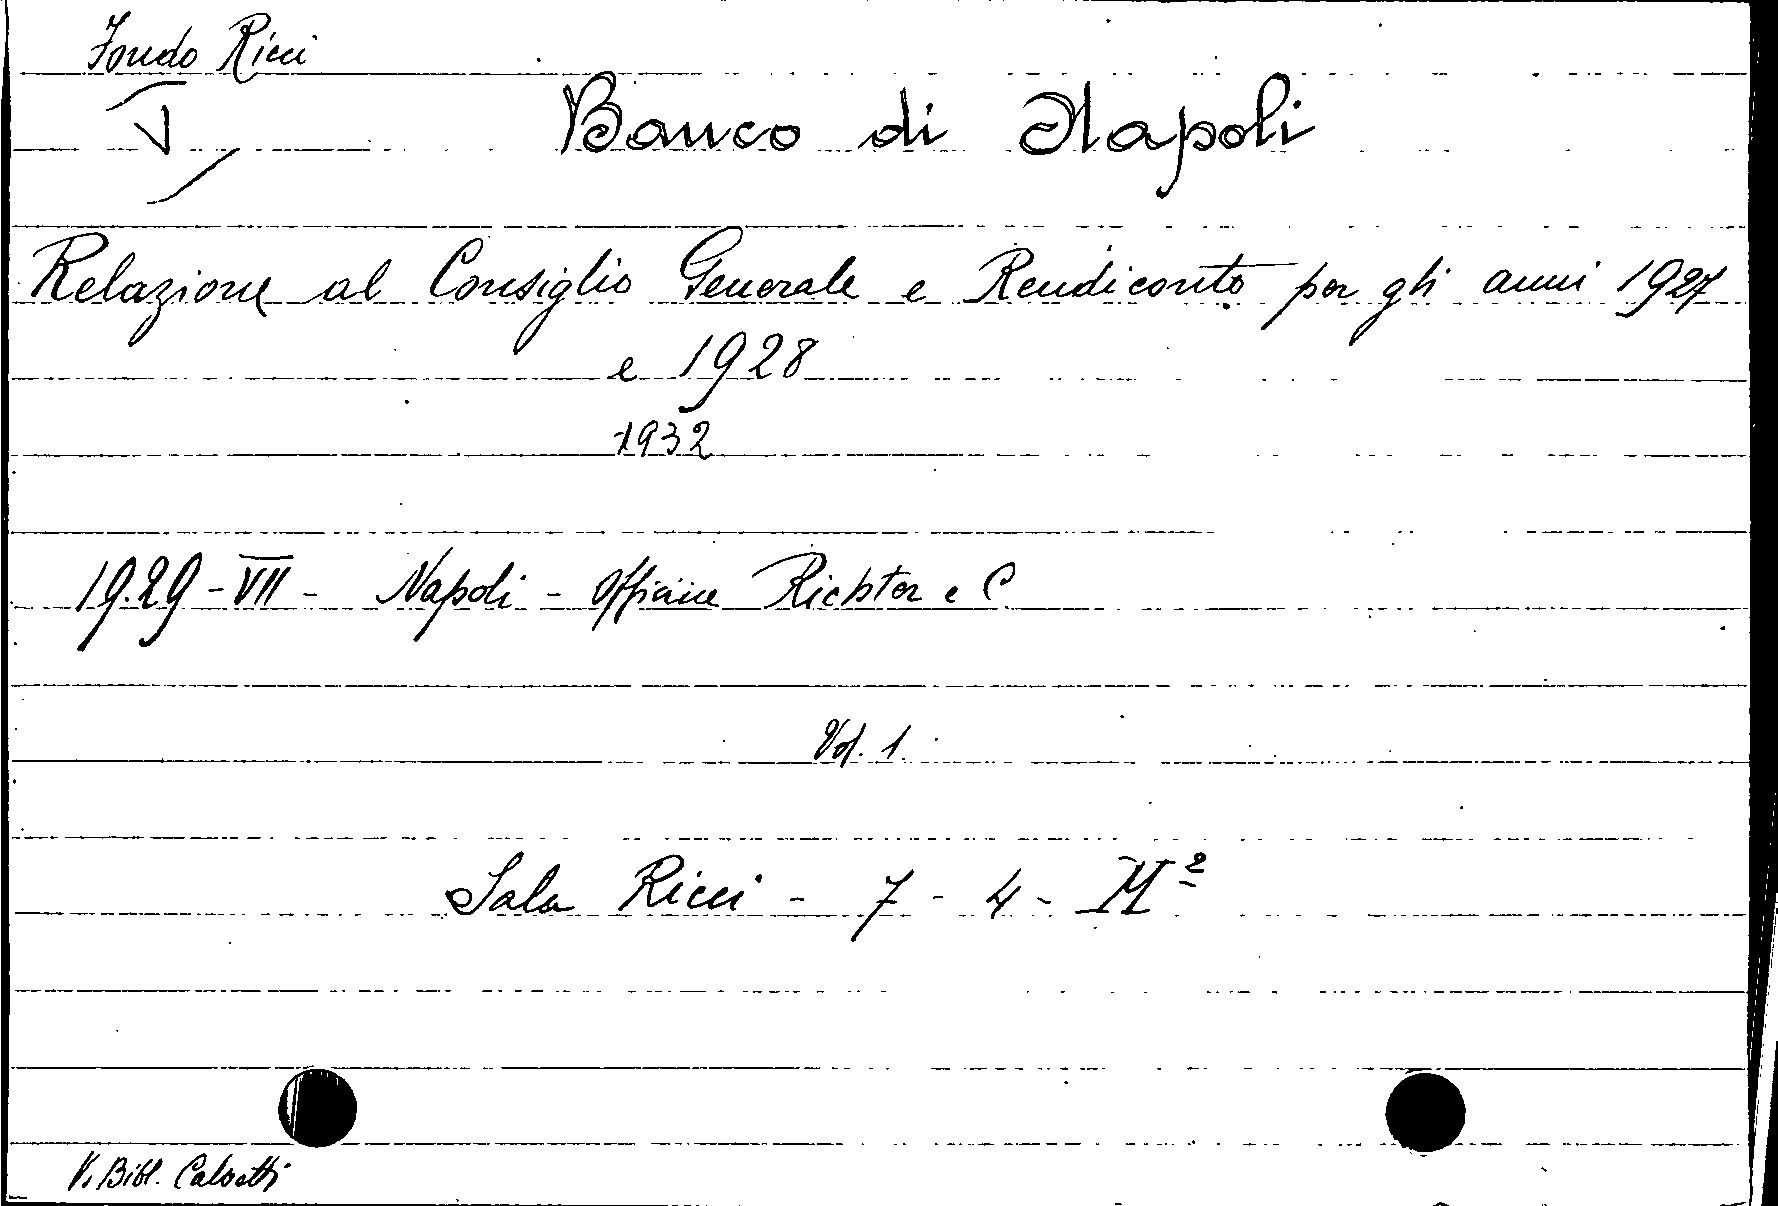 Fondo Ricci
V
Banco di Napoli
Relazione al Consiglio Generale e Rendiconto per gli anni 1927
e 1928
1932
1929 - VII - Napoli - Officine Richter e C.
Vol. 1.
Sala Ricci - 7 - 4 -
V. Bibl.